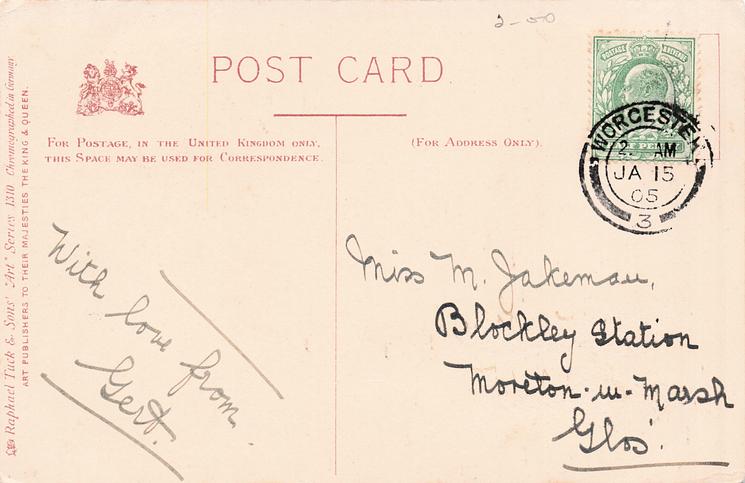 2-00
POST CARD.
FOR POSTAGE, IN THE UNITED KINGDOM ONLY,
THIS SPACE MAY BE USED FOR CORRESPONDENCE.
(FOR ADDRESS ONLY).
POSTAGE REVENUE
WORCESTER
2. AM
JA 15
05
3
With love from
Gert.
Miss M. Jakeman,
Blockley Station
Moreton-in-Marsh
Glos.
Raphael Tuck & Sons' "Art" Series 1310 Chromographed in Germany.
ART PUBLISHERS TO THEIR MAJESTIES THE KING & QUEEN.